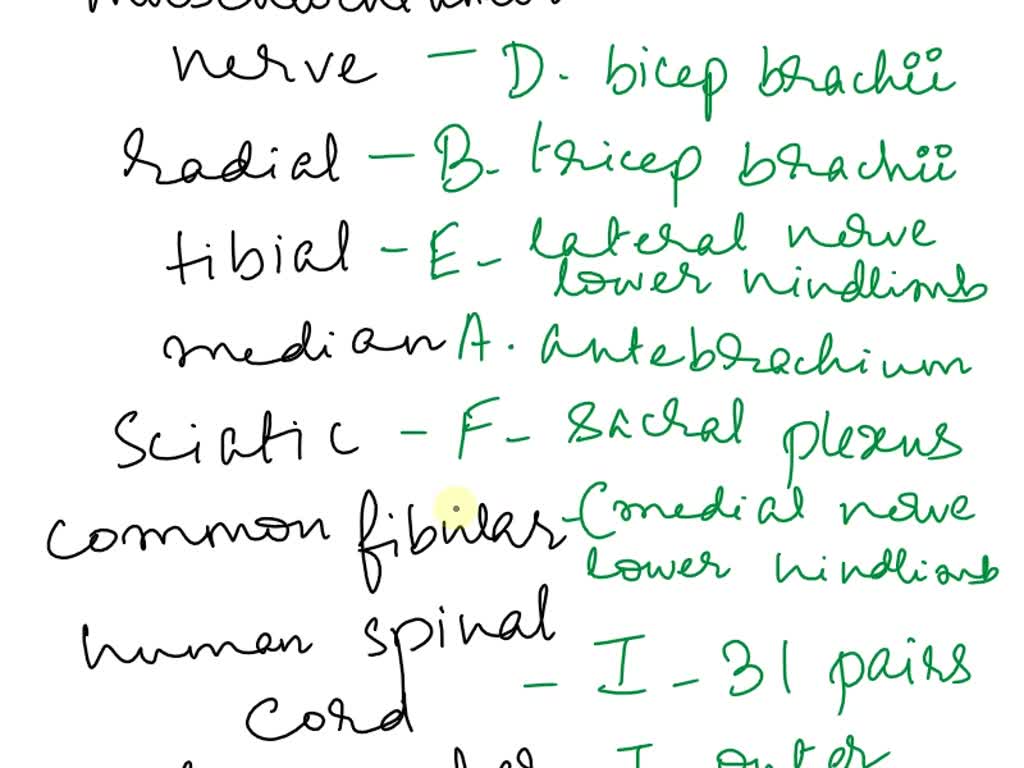 nerve - D. bicep brachii
radial - B. tricep brachii
tibial - E - lateral nerve
lower hindlimb
median A. antebrachium
Sciatic - F - sacral plexus
common fibular - C medial nerve
lower hindlimb
human spinal
cord - I - 31 pairs
outer